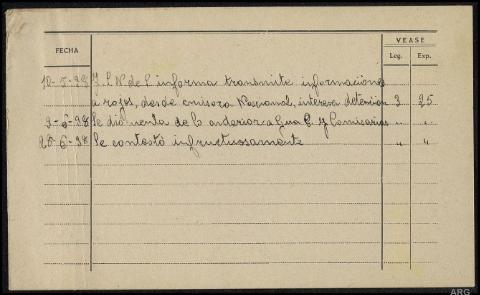 FECHA
VEASE
Leg. Exp.
10-5-38 informa transmite informaciones
a rojos, desde emisora Nacional, interesa detencion 3 25
9-6-38 Se dió cuenta de lo anterior a Gua C. y Comisarias " "
20-6-38 Se contestó infructuosamente " "
ARG